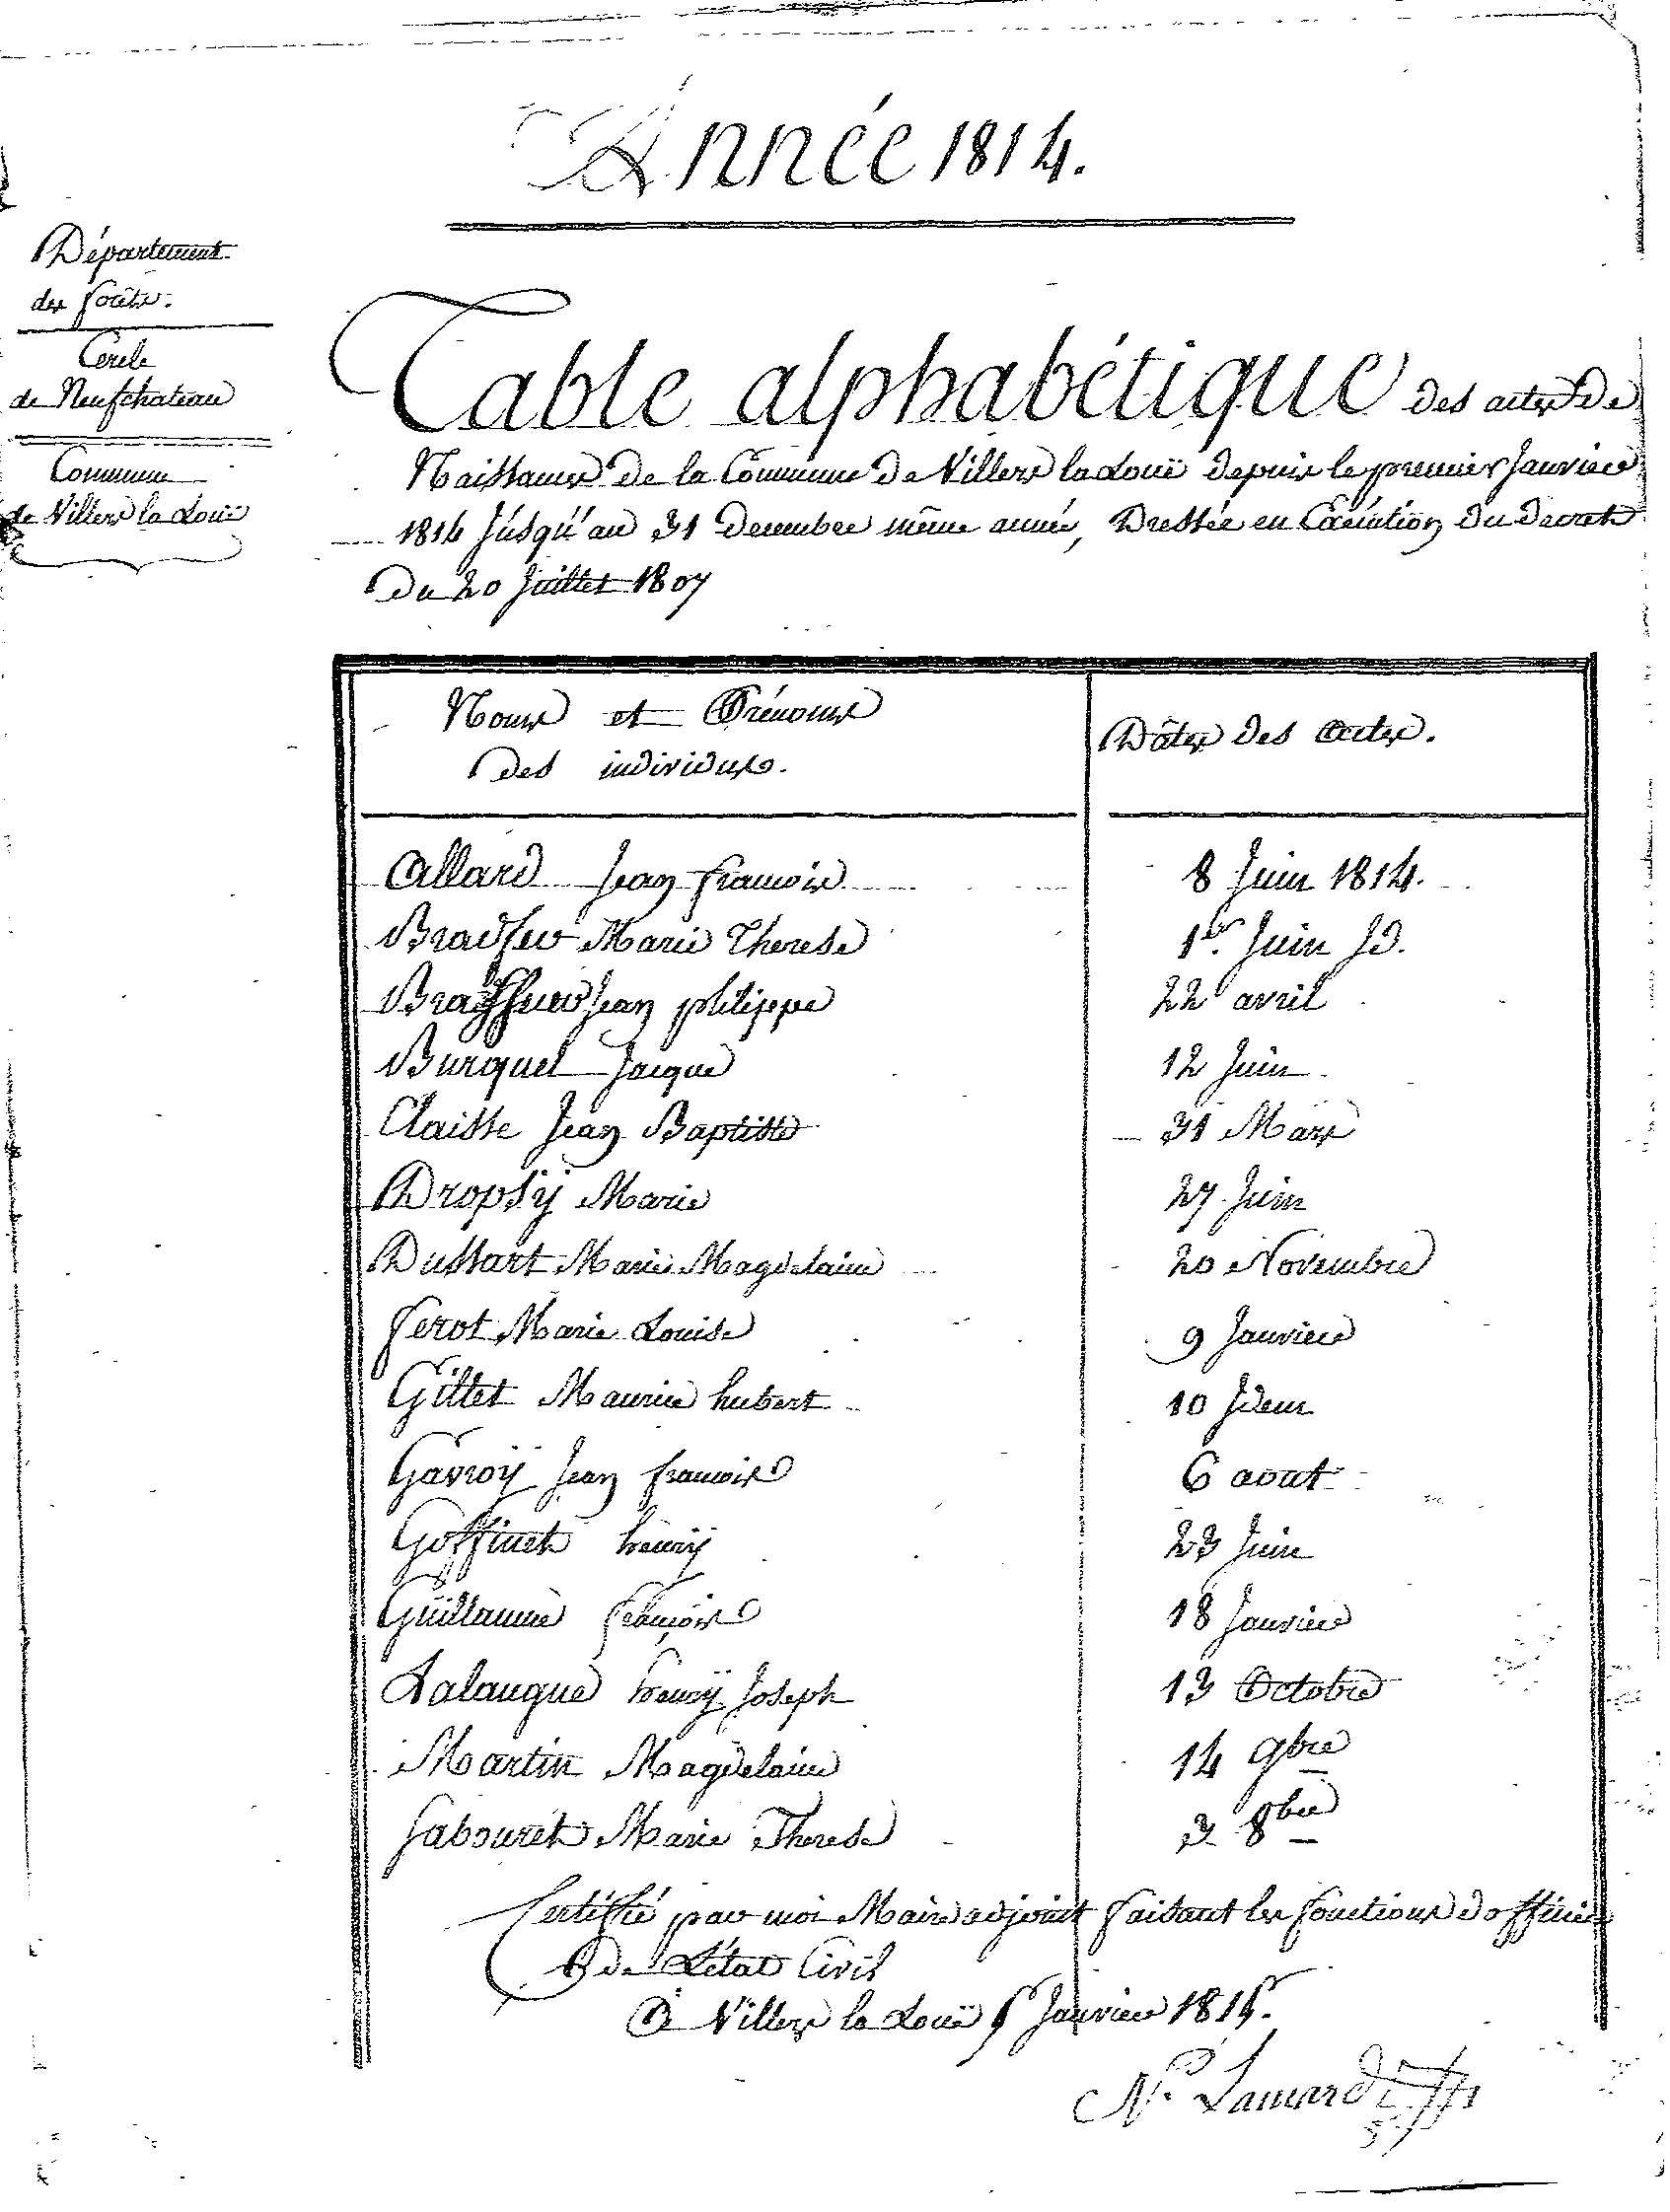 Année 1814.
Département
des forêts.
Cercle
de Neufchateau
Commune
de Villers la Loüe
Table alphabétique des actes de
Naissances de la Commune de Villers la Loüe depuis le premier Janvier
1814 Jusqu'au 31 Decembre même année, Dressée en Exécution du decret
du 20 Juillet 1807
Noms et Prénoms
des individus.
Dâtes des Actes.
Allard Jean françois 8 Juin 1814.
Bradfer Marie Therese 1er Juin Id.
Jean philippe 22 avril
Burquel Jacque 12 Juin
Claisse Jean Baptiste 31 Mars
Dropsÿ Marie 27 Juin
Dussart Marie Magdelaine 20 Novembre
ferot Marie Louise 9 Janvier
Gillet Maurice hubert 10 Idem
Gavroÿ Jean françois 6 aout
Goffinet henrÿ 23 Juin
Guillaume françois 18 Janvier
Lalangue henrÿ Joseph 13 Octobre
Martin Magdelaine 14 9bre
Sabouret Marie Therese 3 8bre
Certifié par moi Maire adjoint faisant les fonctions d'officier
de L'état Civil
A Villers la Loüe Janvier 1815.